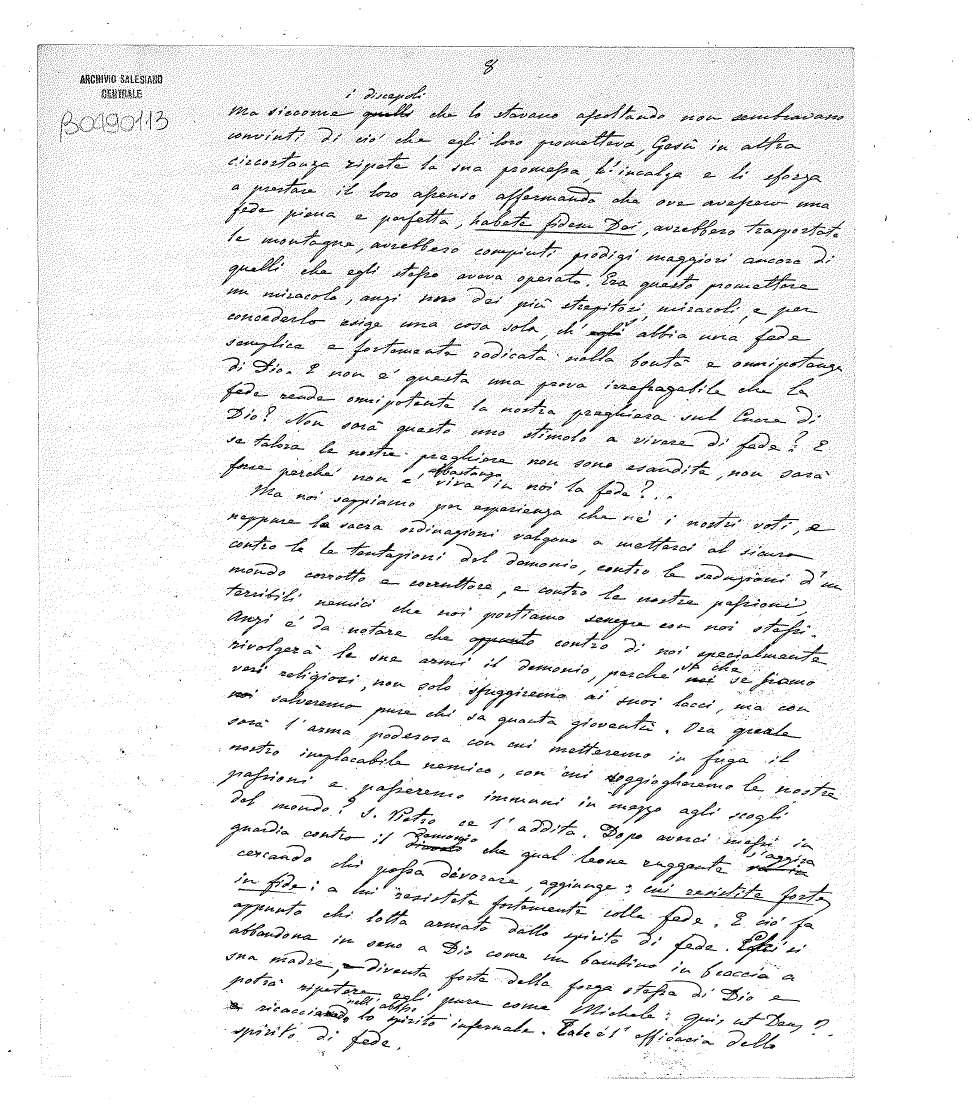 8
ARCHIVIO SALESIANO
CENTRALE
B0490113
i discepoli
Ma siccome quelli che lo stavano ascoltando non sembravano
convinti di ciò che egli loro prometteva, Gesù in altra
circostanza ripete la sua promessa, li incalza e li sforza
a prestare il loro assenso affermando che ove avessero una
fede piena e perfetta, habete fidem Dei, avrebbero trasportate
le montagne, avrebbero compiuti prodigi maggiori ancora di
quelli che egli stesso aveva operato. Era questo promettere
un miracolo, anzi uno dei più strepitosi miracoli, e per
concederlo esige una cosa sola, ch'egli abbia una fede
semplice e fortemente radicata nella bontà e onnipotenza
di Dio. E non è questa una prova irrefragabile che la
fede rende onnipotente la nostra preghiera sul Cuore di
Dio? Non sarà questo uno stimolo a vivere di fede? E
se talora le nostre preghiere non sono esaudite, non sarà
forse perché non è abbastanza viva in noi la fede?..
Ma noi sappiamo per esperienza che nè i nostri voti, e
neppure le sacre ordinazioni valgono a metterci al sicuro
contro le le tentazioni del demonio, contro le seduzioni d'un
mondo corrotto e corruttore, e contro le nostre passioni,
terribili nemici che noi portiamo sempre con noi stessi.
Anzi è da notare che appunto contro di noi specialmente
rivolgerà le sue armi il demonio, perché sa che noi se siamo
veri religiosi, non solo sfuggiremo ai suoi lacci, ma con
noi salveremo pure chi sa quanta gioventù. Ora quale
sarà l'arma poderosa con cui metteremo in fuga il
nostro implacabile nemico, con cui soggiogheremo le nostre
passioni e passeremo immuni in mezzo agli scogli
del mondo? S. Pietro ce l'addita. Dopo averci messi in
guardia contro il demonio che qual leone ruggente s'aggira
cercando chi possa divorare, aggiunge: cui resistite fortes
in fide: a cui resistete fortemente colla fede. E ciò fa
appunto chi lotta armato dello spirito di fede. Egli si
abbandona in seno a Dio come un bambino in braccio a
sua madre, diventa forte della forza stessa di Dio e
potrà ripetere egli pure come Michele: quis ut Deus?
e ricacciando nell'abisso lo spirito infernale. Tale è l'efficacia dello
spirito di fede.